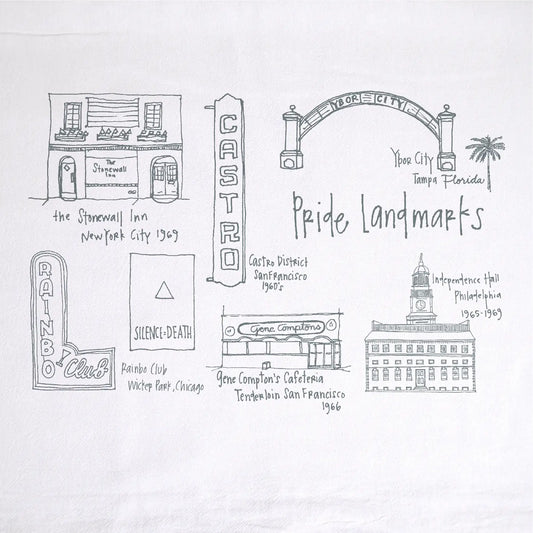 The
Stonewall
Inn
the Stonewall Inn
New York City 1969
CASTRO
Castro District
San Francisco
1960's
YBOR CITY
Ybor City
Tampa Florida
Pride Landmarks
RAINBO
Club
SILENCE=DEATH
Rainbo Club
Wicker Park, Chicago
Gene Comptons
Gene Compton's Cafeteria
Tenderloin San Francisco
1966
Independence Hall
Philadelphia
1965-1969